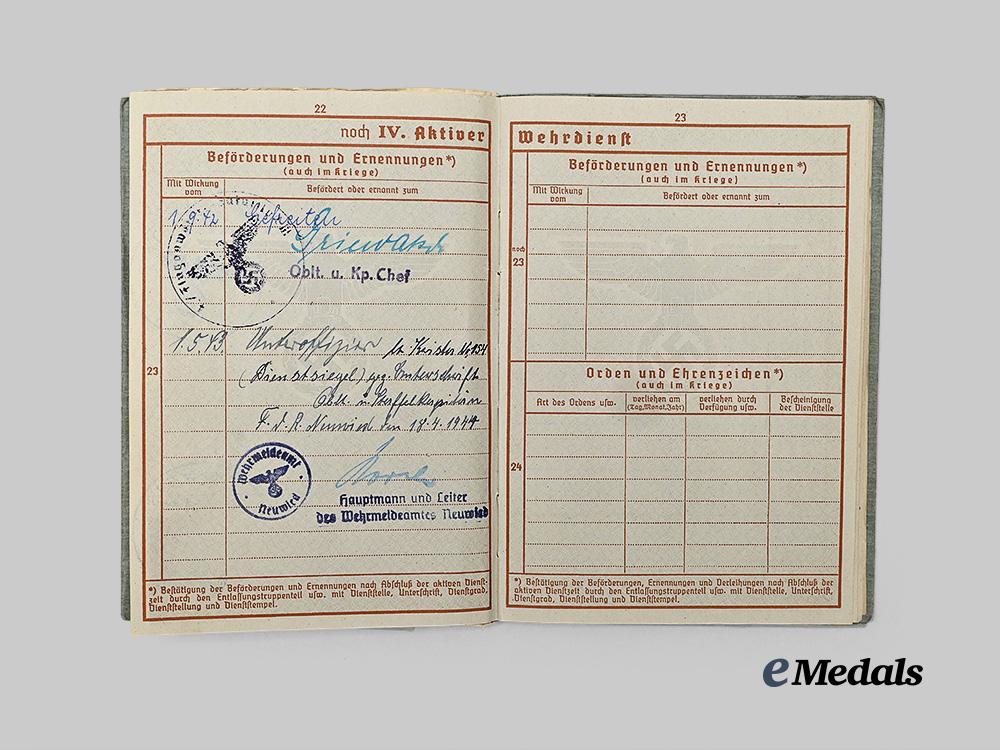 22
noch IV. Aktiver
Beförderungen und Ernennungen*)
(auch im Kriege)
Mit Wirkung vom
Befördert oder ernannt zum
1.9.42 Gefreiten
Oblt. u. Kp. Chef
1.5.43 Unteroffizier
23
(Dienstsiegel) gez. Unterschrift
Oblt. u. Staffelkapitän
F.d.R. Neuwied den 18.4.1944
Wehrmeldeamt
Neuwied
Hauptmann und Leiter
des Wehrmeldeamtes Neuwied
*) Bestätigung der Beförderungen und Ernennungen nach Abschluß der aktiven Dienst-
zeit durch den Entlassungstruppenteil usw. mit Dienststelle, Unterschrift, Dienstgrad,
Dienststellung und Dienststempel.
23
Wehrdienst
Beförderungen und Ernennungen*)
(auch im Kriege)
Mit Wirkung vom
Befördert oder ernannt zum
noch
23
Orden und Ehrenzeichen*)
(auch im Kriege)
Art des Ordens usw.
verliehen am (Tag, Monat, Jahr)
verliehen durch Verfügung usw.
Bescheinigung der Dienststelle
24
*) Bestätigung der Beförderungen, Ernennungen und Verleihungen nach Abschluß der
aktiven Dienstzeit durch den Entlassungstruppenteil usw. mit Dienststelle, Unterschrift,
Dienstgrad, Dienststellung und Dienststempel.
eMedals